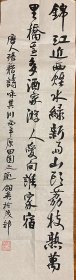 錦江近西煙水綠新雨山頭荔枝熟萬
里橋邊多酒家游人愛向誰家宿
唐人張籍詩